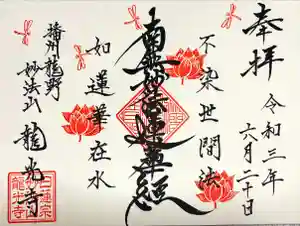 奉拝
令和三年
六月二十日
不染世間法
南無妙法蓮華経
如蓮華在水
播州龍野
妙法山
龍光寺